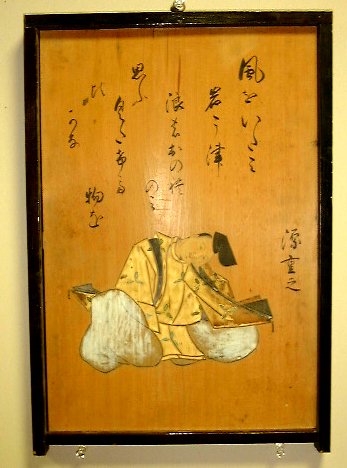 源重之
風をいたミ
岩う津
浪のおの礼
のミ
くたけて
物を
思ふ
比
かな